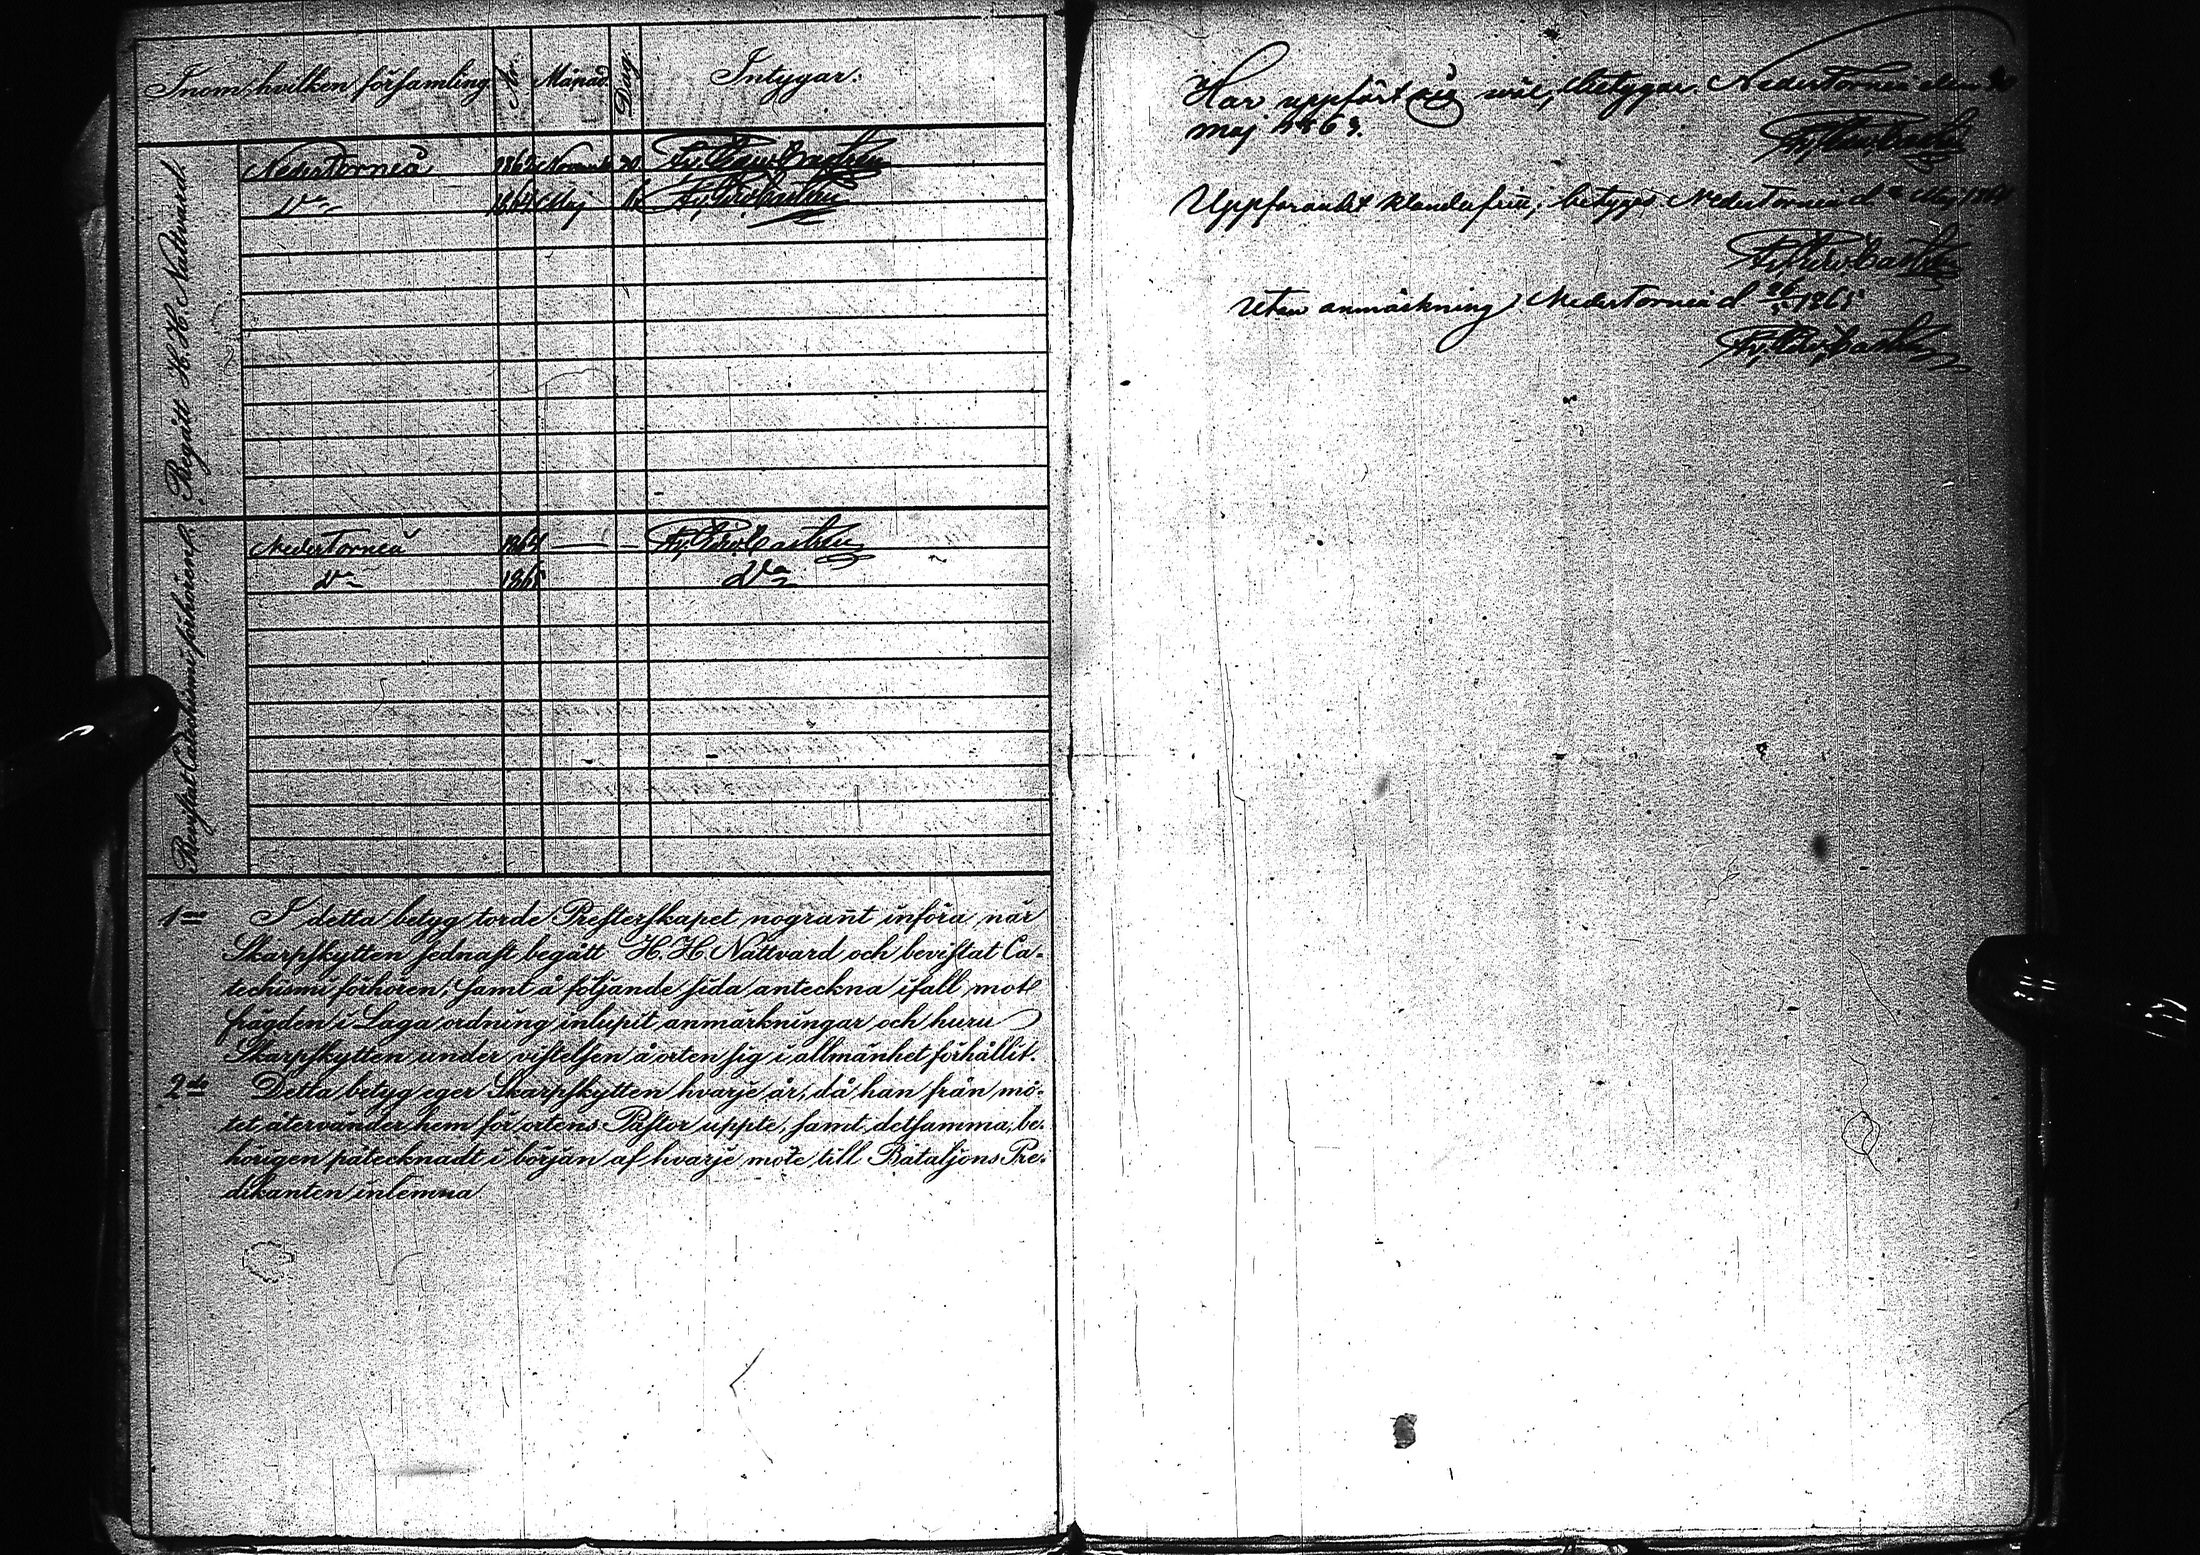 Inom hvilken församling År. Månad. Dag. Intygar:
Begått H. H. Nattvard.
NederTorneå 1862 Novemb 30
Do 1864 Maj
Bevistat Catechismi förhören
NederTorneå 1864 — —
Do 1865 Do
1mo I detta betyg torde Presterskapet nogrant införa när
Skarpskytten sednast begått H. H. Nattvard och bevistat Ca-
techismi förhören, samt å följande sida anteckna ifall mot
frägden i Laga ordning inlupit anmärkningar och huru
Skarpskytten under vistelsen å orten sig i allmänhet förhållit.
2do Detta betyg eger Skarpskytten hvarje år, då han från mö-
tet återvänder hem för ortens Pastor uppte, samt detsamma, be-
hörigen påtecknadt i början af hvarje möte till Bataljons Pre-
dikanten inlemna
Har uppfört sig wäl, betygar. NederTorneå den
Maj 1863.
Uppförandet klanderfritt, betygas NederTorneå d Maj 1864
Utan anmärkning. NederTorneå d 26 1865